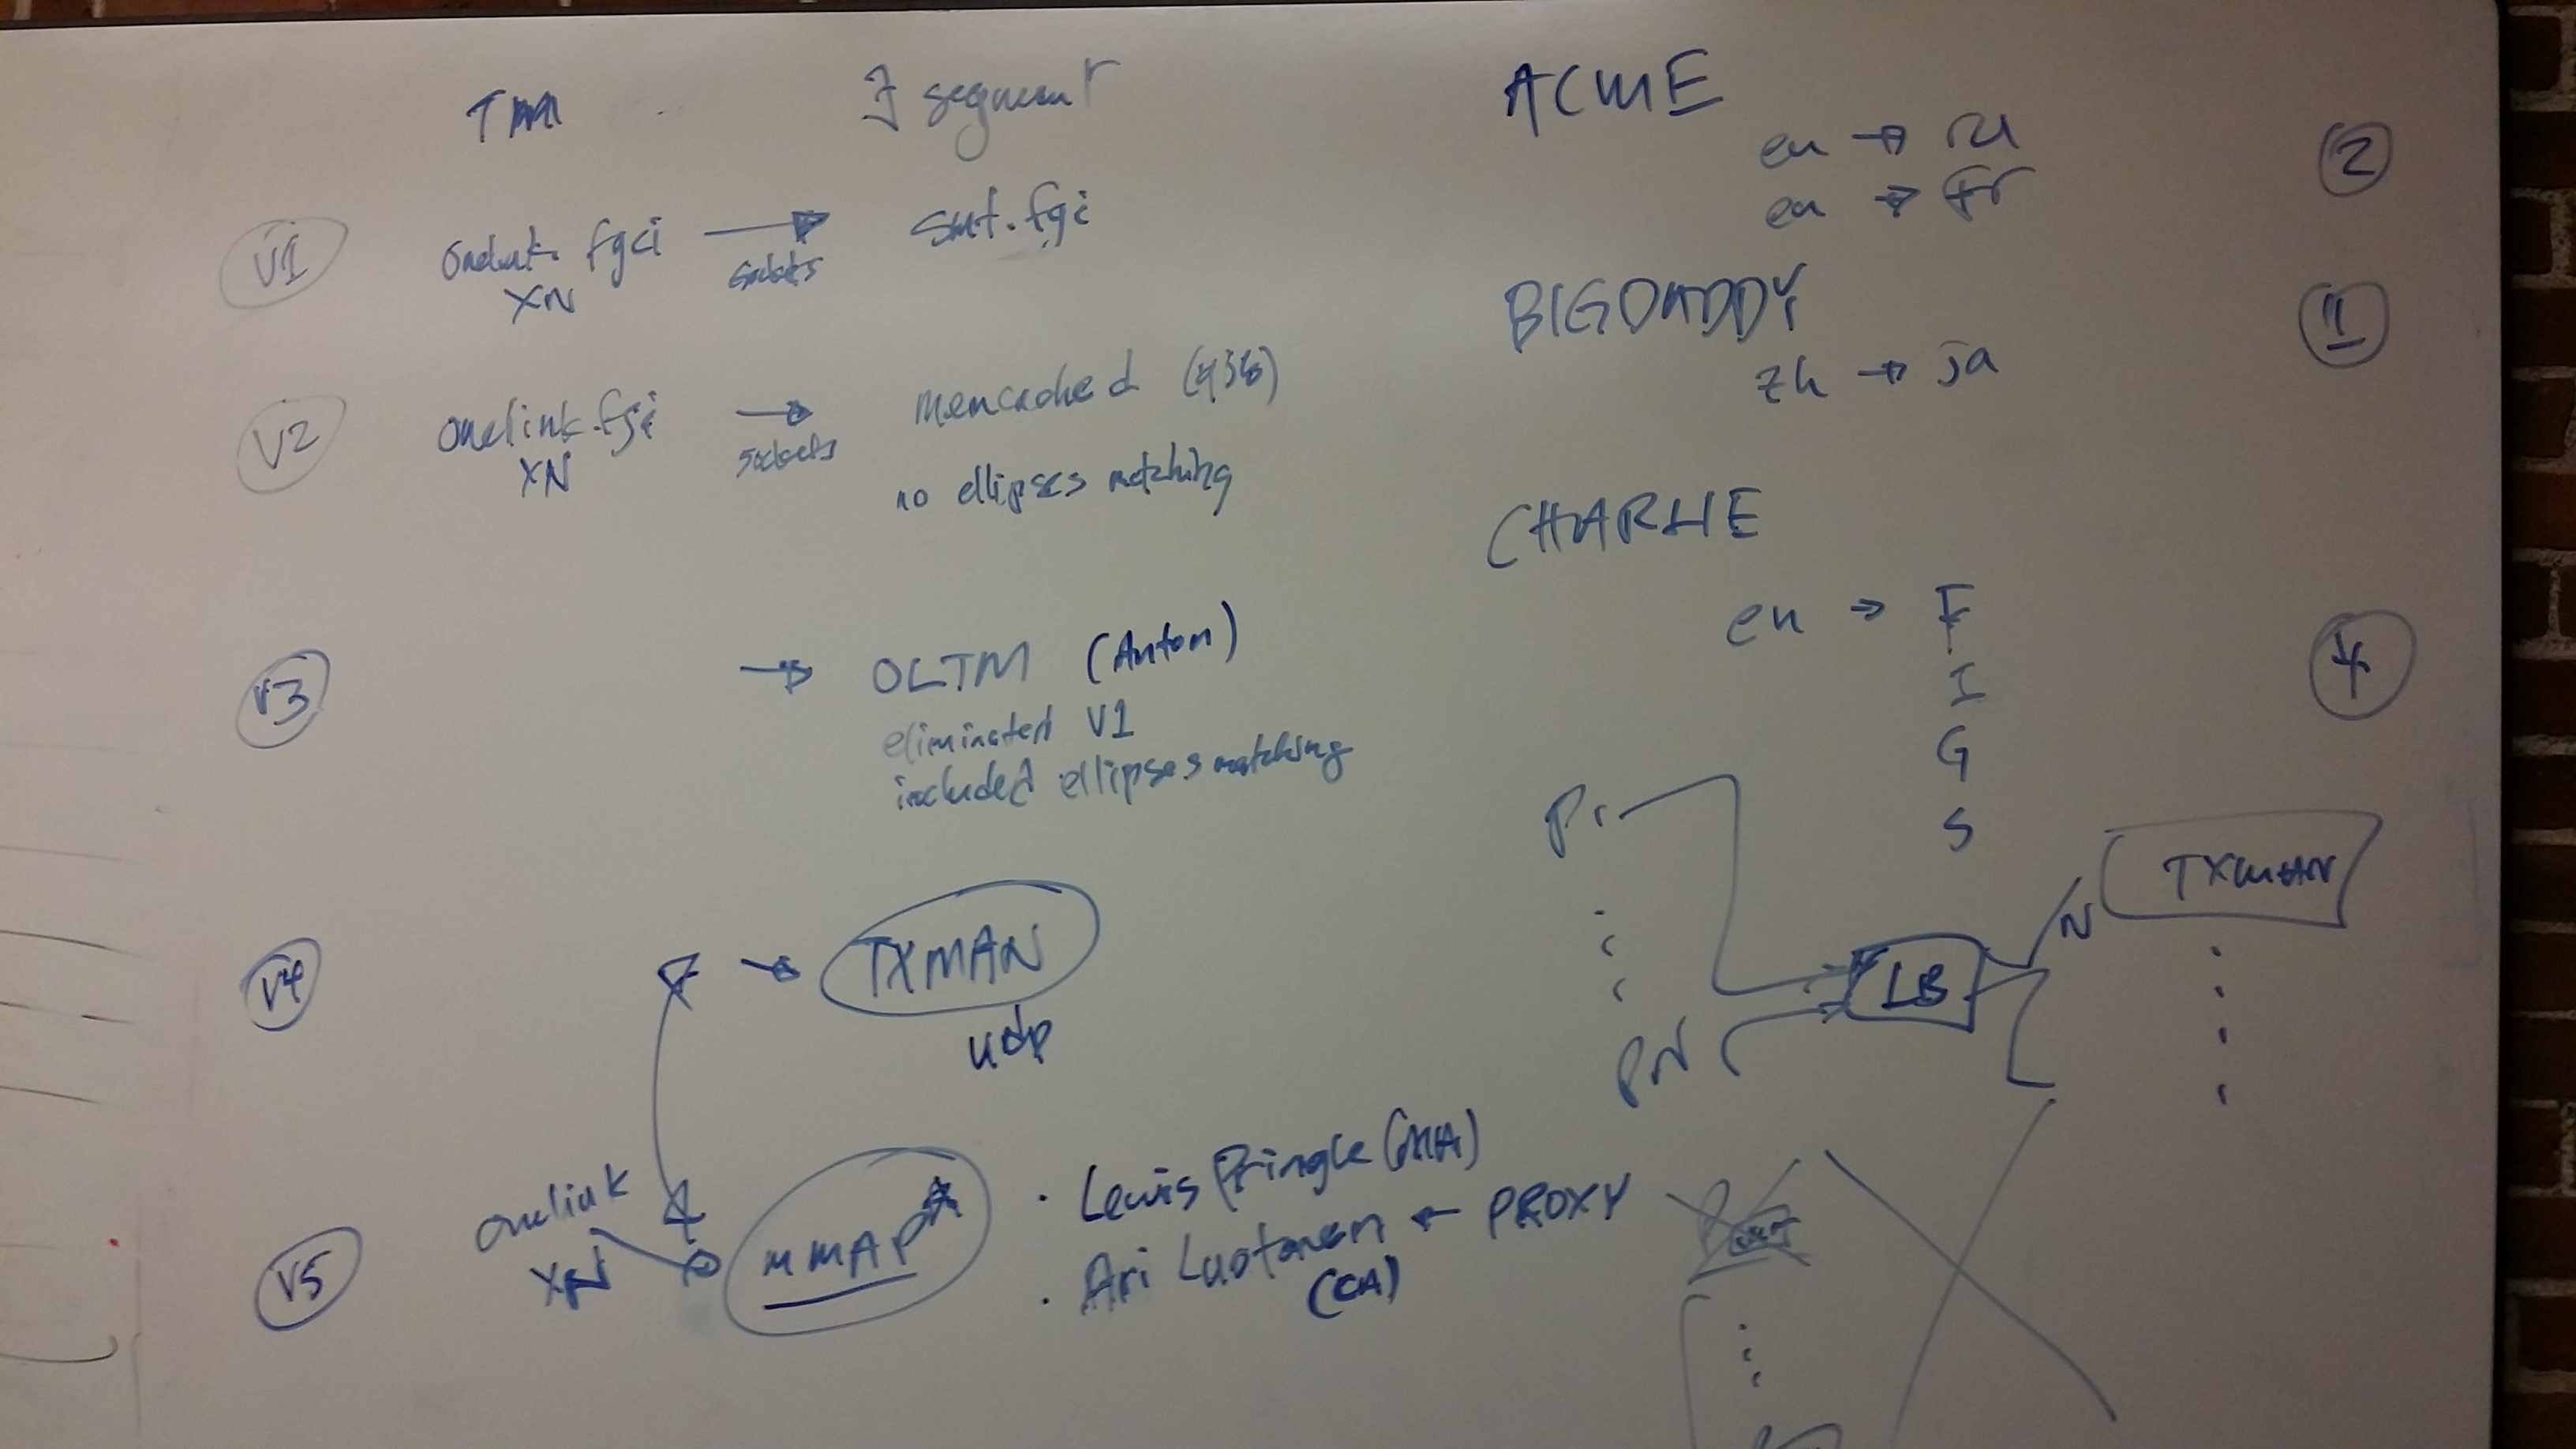 TM
segment
V1
onelink.fgci
XN
sockets
smt.fgi
V2
onelink.fgi
XN
sockets
memcached
no ellipses matching
V3
→ OLTM (Anton)
eliminated V1
included ellipses matching
V4
→ TXMAN
udp
V5
onelink
XN
MMAP
· Lewis Pringle (MA)
· Ari Luotonen ← PROXY
(CA)
ACME
en → ru
en → fr
2
BIGDADDY
zh → ja
1
CHARLIE
en → F
I
G
S
4
P1
PN
LB
N
TXMAN